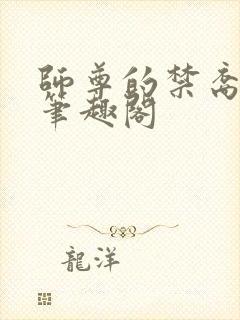 師尊的禁臠
筆趣閣
龍洋